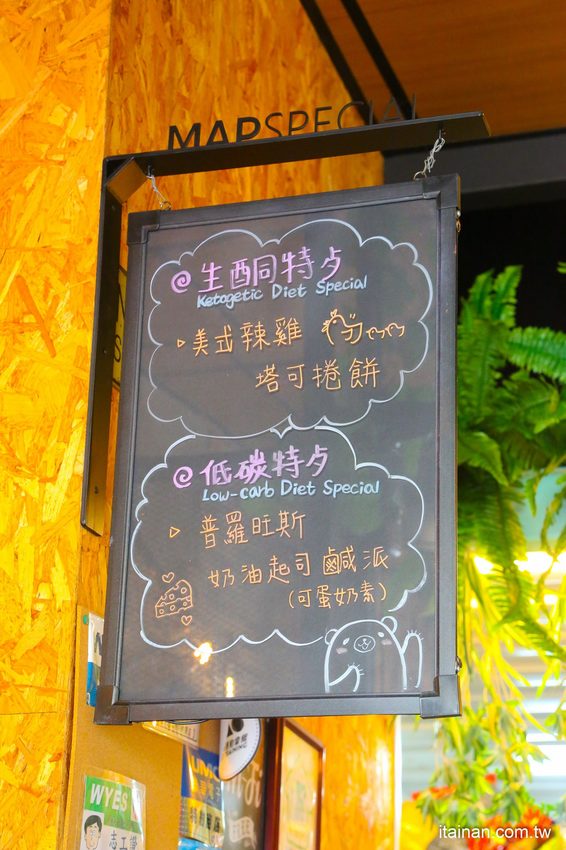 MAPSPECIAL
生酮特歺
Ketogetic Diet Special
美式辣雞
塔可捲餅
低碳特歺
Low-carb Diet Special
普羅旺斯
奶油起司鹹派
(可蛋奶素)
WYES
志工
itainan.com.tw